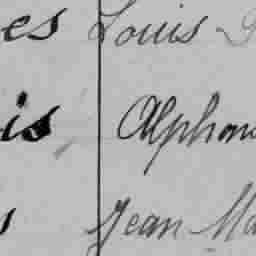 es Louis
is Alphons
s Jean Ma